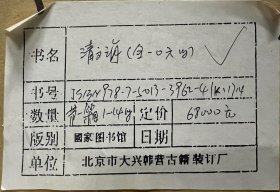 书名 清文海(全一〇六册)
书号 ISBN978-7-5013-3962-4/K·1714
数量 第一箱1-14 定价 68000元
版别 國家图书馆 日期
单位 北京市大兴韩营古籍装订厂